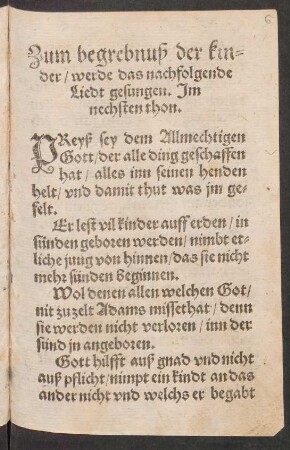 6
Zum begrebnuß der kin-
der/ werde das nachfolgende
Liedt gesungen. Im
nechsten thon.
PReyß sey dem Allmechtigen
Gott/ der alle ding geschaffen
hat/ alles inn seinen henden
helt/ vnd damit thut was jm ge-
felt.
Er lest vil kinder auff erden/ in
sünden geboren werden/ nimbt et-
liche jung von hinnen/ das sie nicht
mehr sünden beginnen.
Wol denen allen welchen Got/
nit zuzelt Adams missethat/ denn
sie werden nicht verloren/ inn der
sünd jn angeboren.
Gott hilfft auß gnad vnd nicht
auß pflicht/ nimpt ein kindt an das
ander nicht vnd welchs er begabt